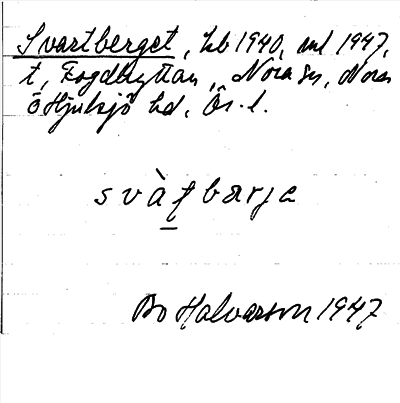 Svartberget, hb 1940, ml 1947,
t, Fogdhyttan, Nora sn, Nora
o Hjulsjö hd, Ör. l.
svàtbærje
Bo Halvarson 1947